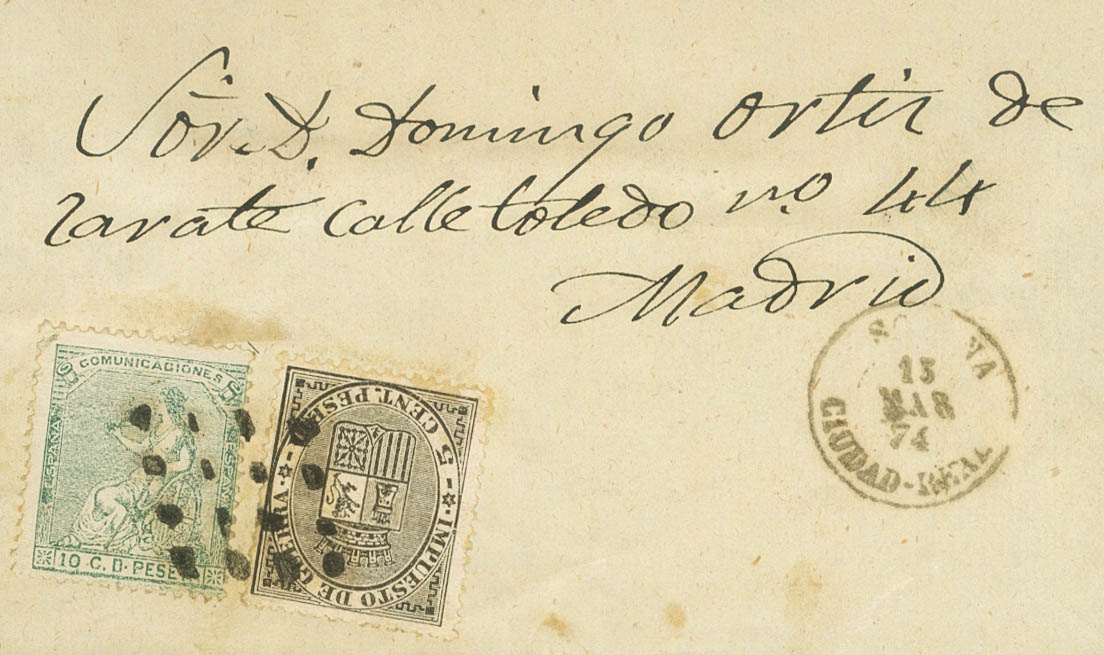 Sor. D. Domingo Ortiz de
Zarate Calle toledo no. 44
Madrid
COMUNICACIONES
ESPAÑA
10 C. D. PESE
5 CENT. PESE
IMPUESTO DE GUERRA
15
MAR
74
CIUDAD-REAL